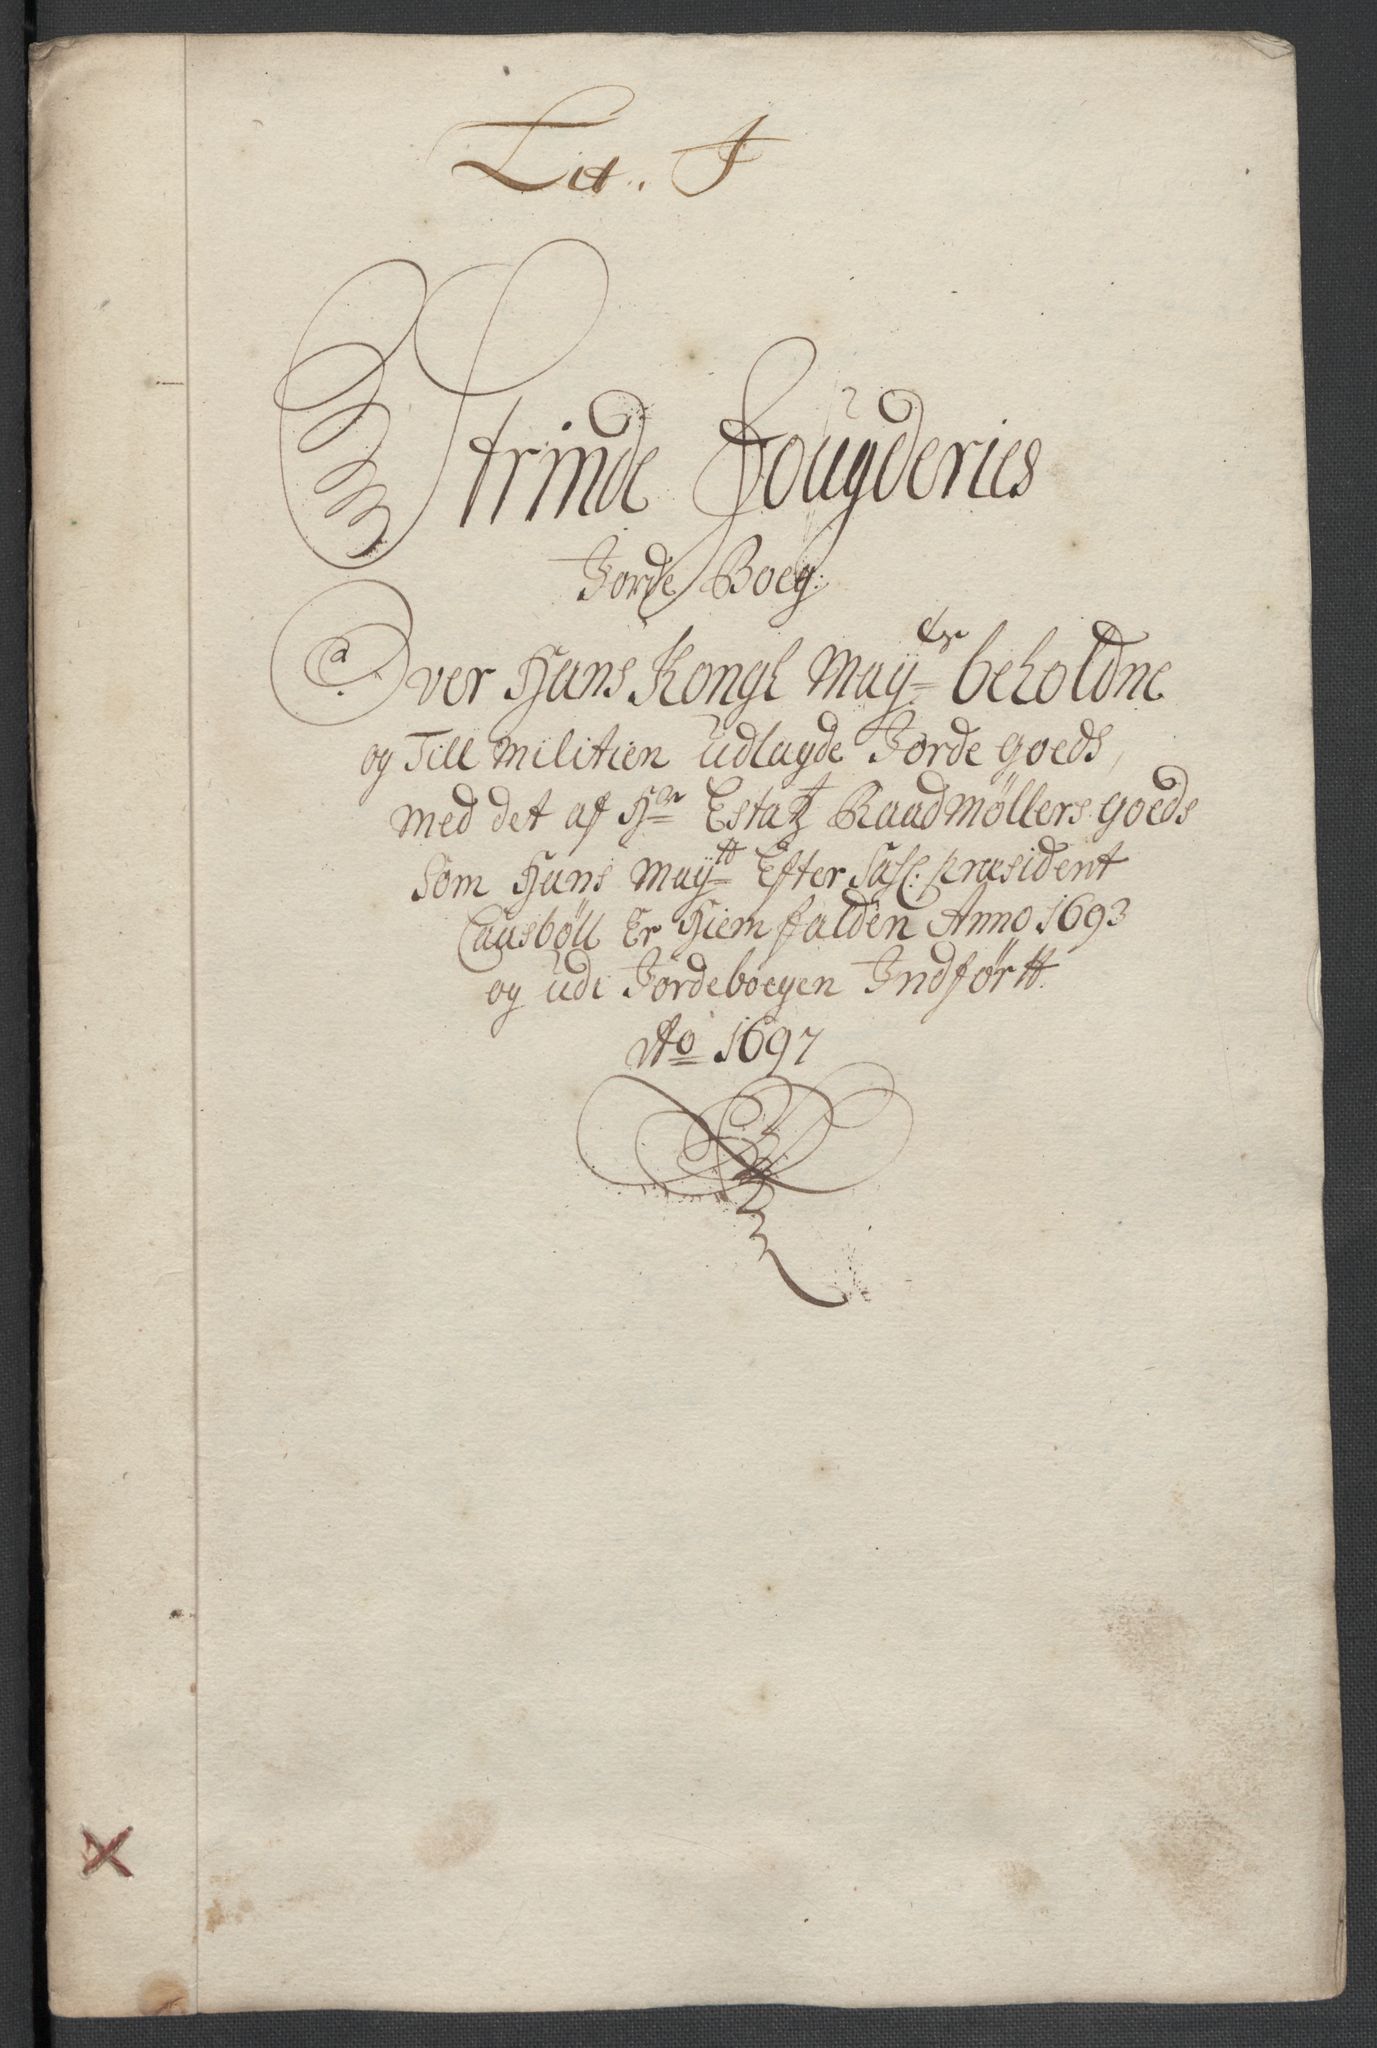 Lit. F
Strinde Fougderies
Jorde Boeg:
Over Hans Kongl May:ts beholdne
og Till Militien Udlagde Jorde goeds,
med det af Hr Estatz Raad Møllers goeds
som Hans May:tt Efter Sal: præsident
Causböll Er Hiemfalden Anno 1693
og udi Jordebogen Indført.
Ao 1697